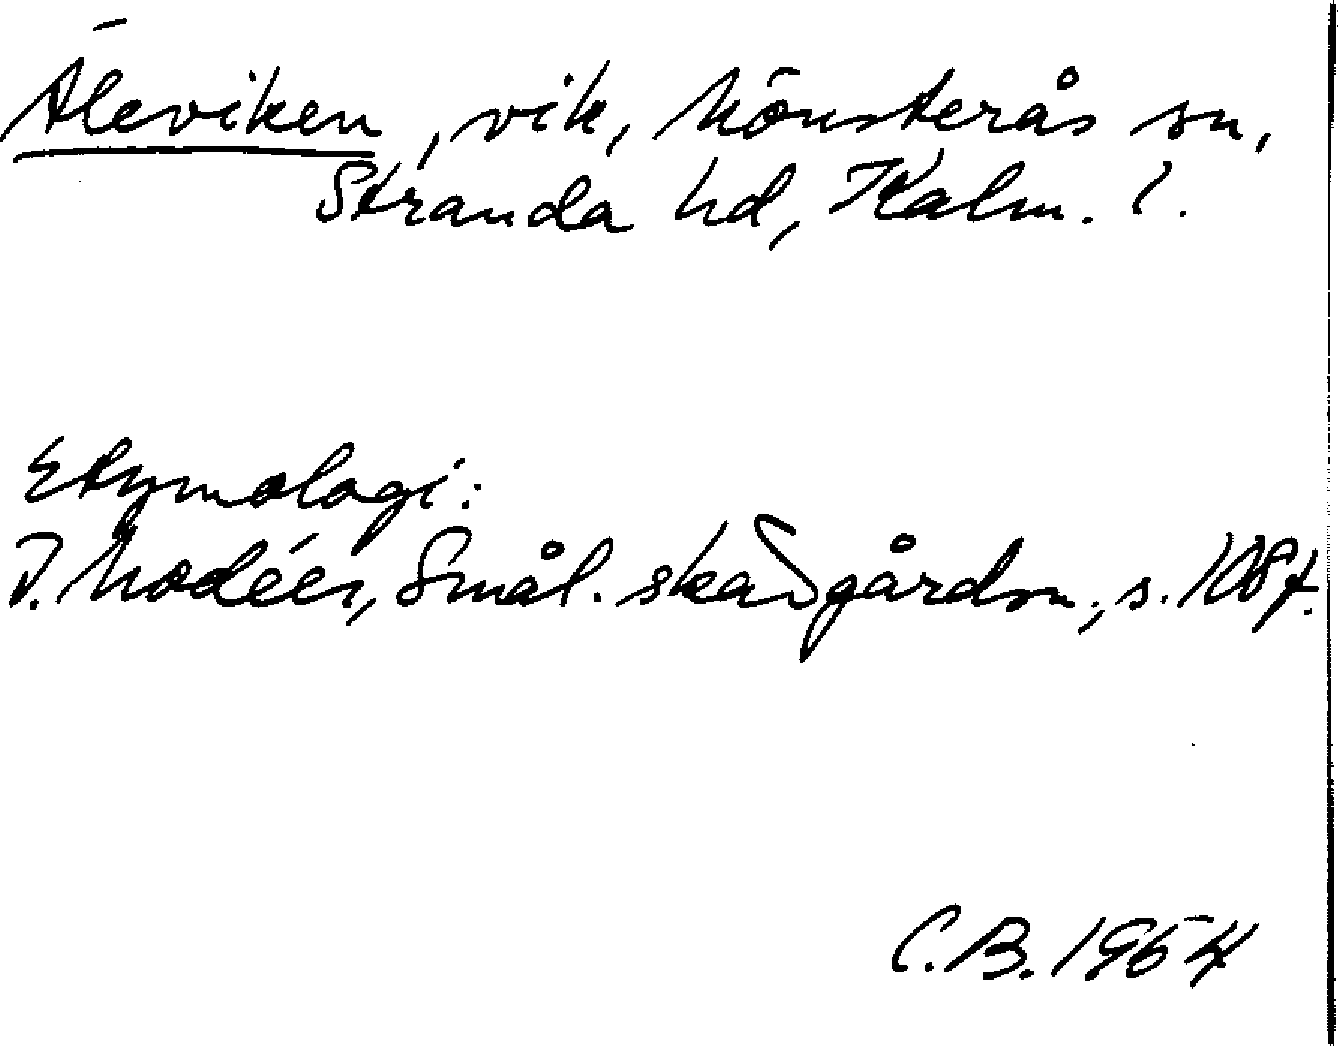 Äleviken, vik, Mönsterås sn,
Stranda hd, Kalm. l.
Etymologi:
I. Modéer, Smål. skärgårdsn., s. 108 f.
C.B. 1964